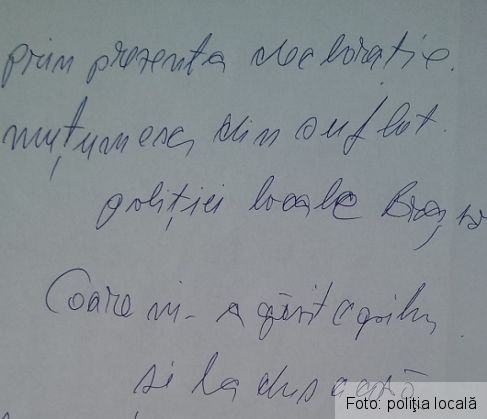 prin prezenta decloratie.
muțumesc din suflet.
poliției locale Brașo
Coare m-a găsit copilu
si la dus acasă
Foto: poliția locală